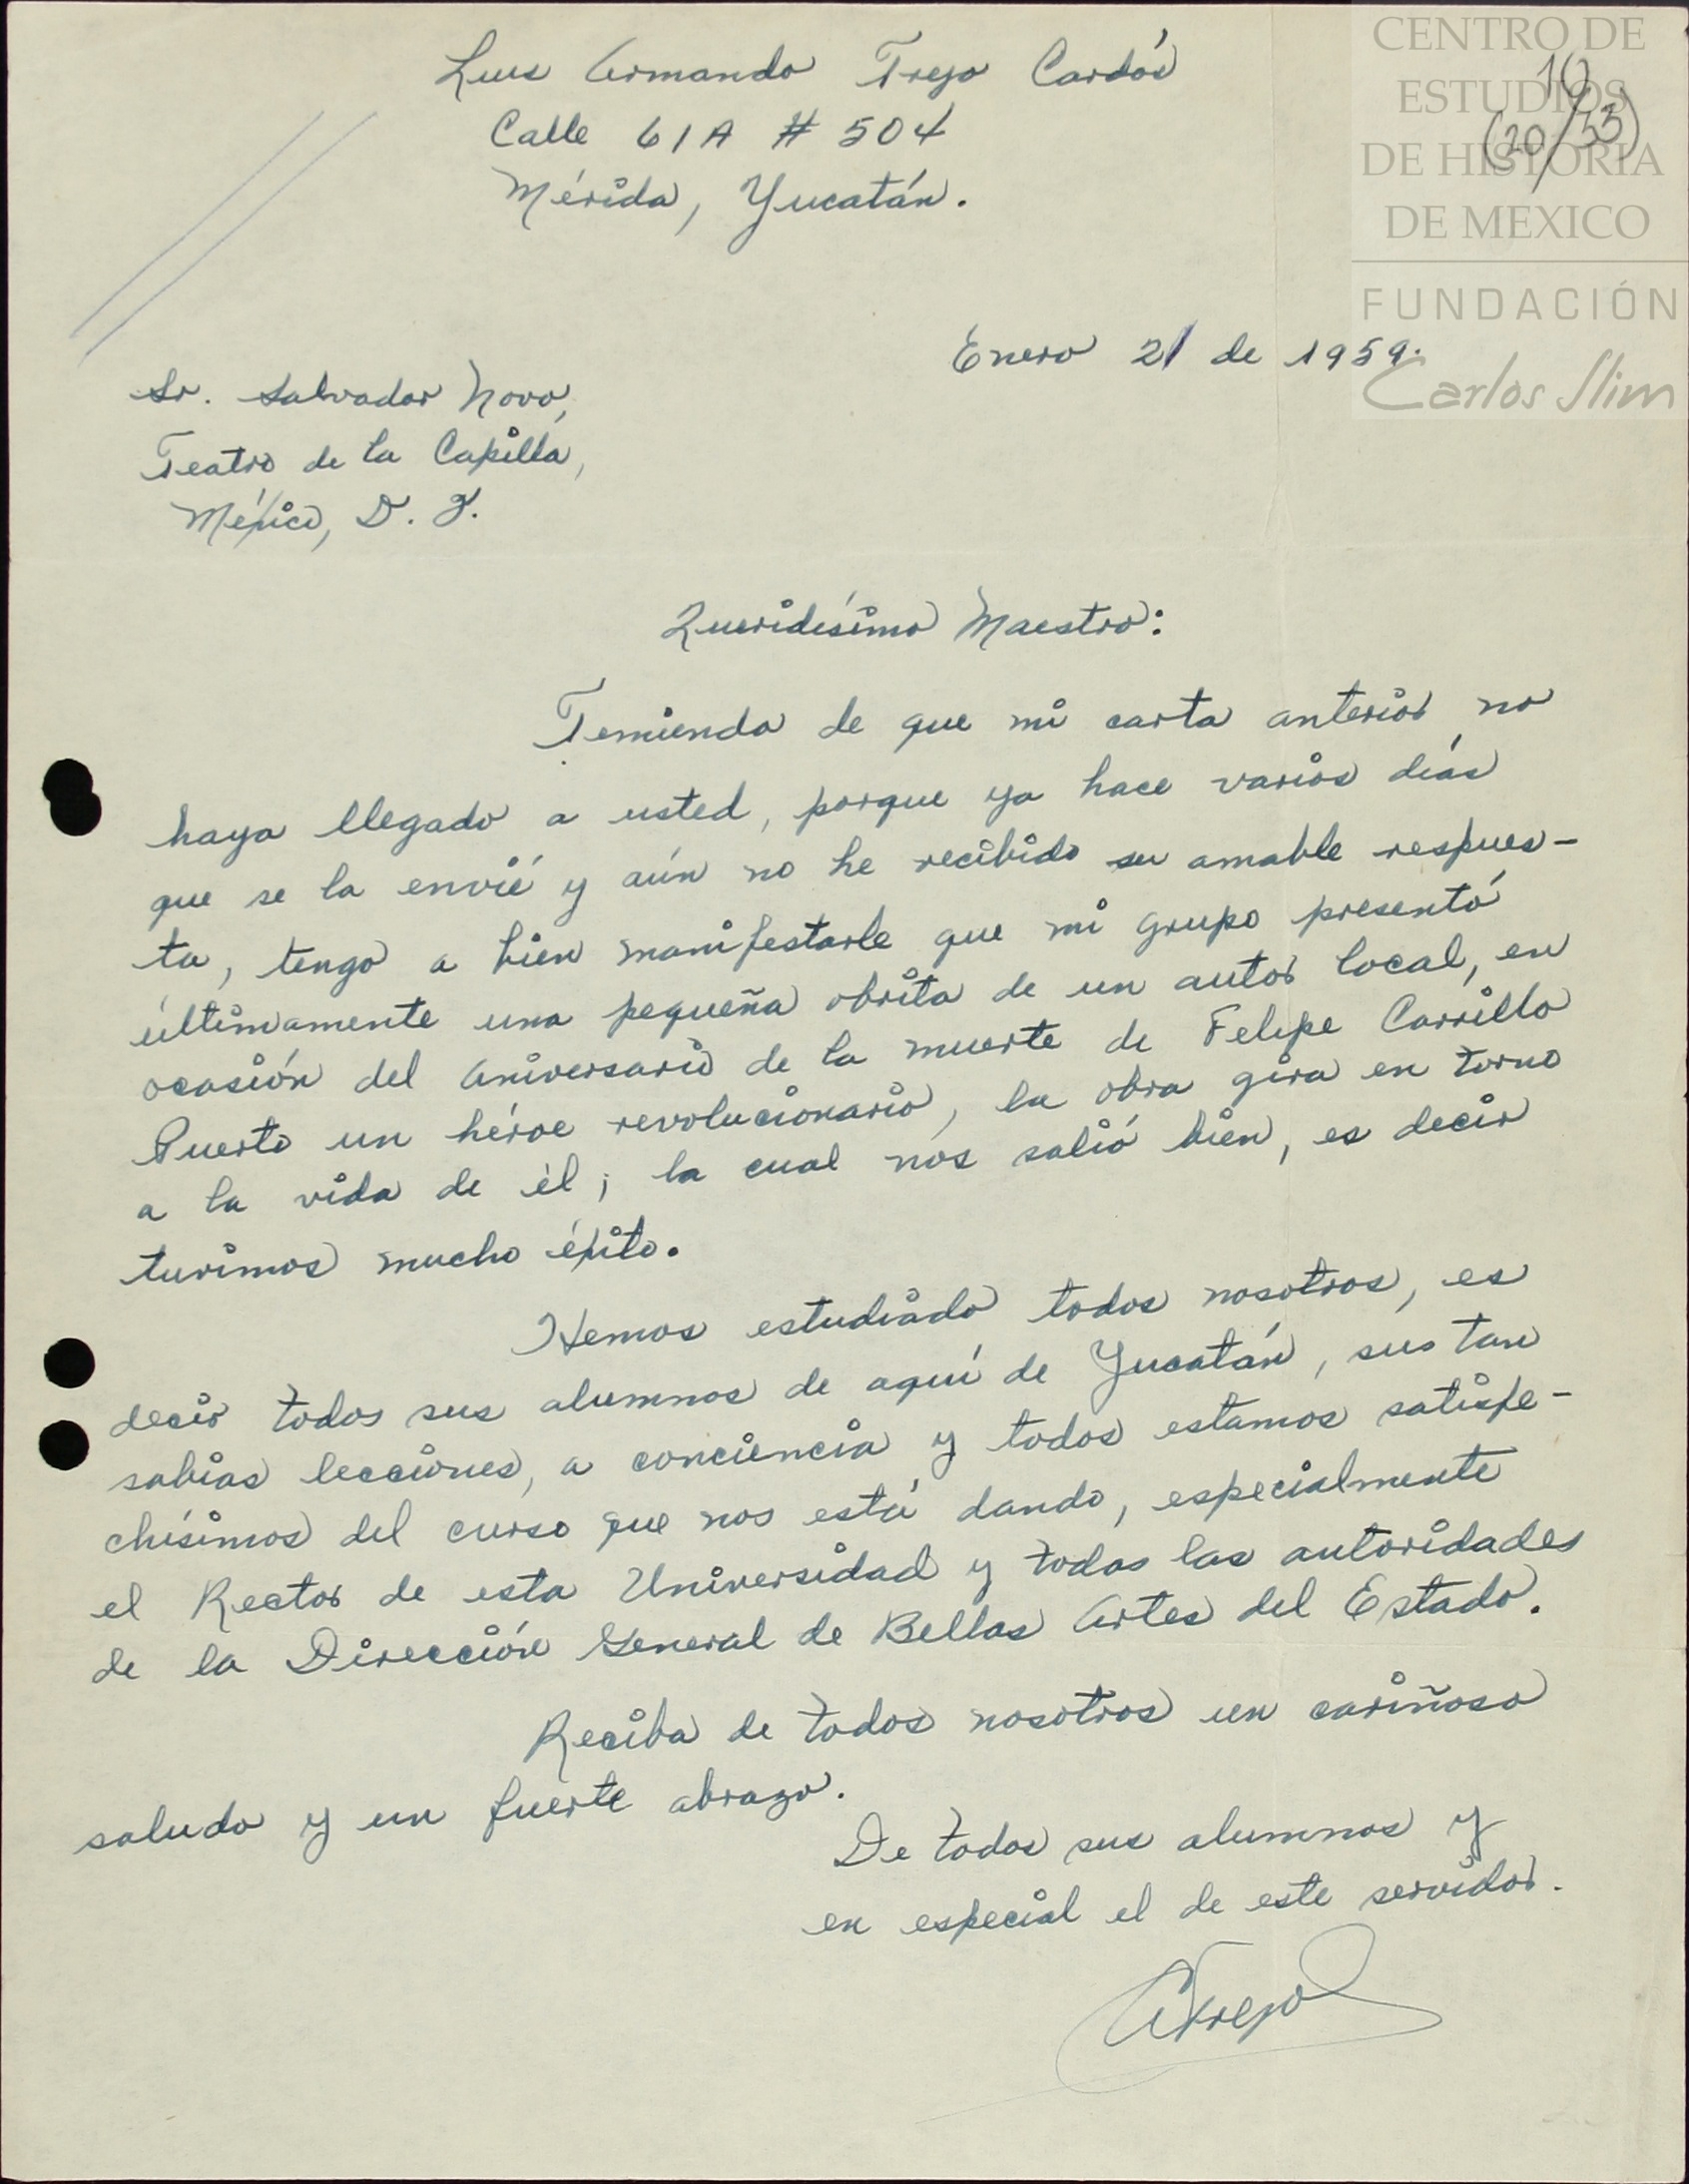 Luis Armando Trejo Cardós
Calle 61A # 504
Mérida, Yucatán.
CENTRO DE
ESTUDIOS
DE HISTORIA
DE MEXICO
FUNDACIÓN
Carlos Slim
10
(20/53)
Enero 21 de 1959.
Sr. Salvador Novo,
Teatro de la Capilla,
México, D. F.
Queridísimo Maestro:
Temiendo de que mi carta anterior no
haya llegado a usted, porque ya hace varios días
que se la envié y aún no he recibido su amable respues-
ta, tengo a bien manifestarle que mi grupo presentó
últimamente una pequeña obrita de un autor local, en
ocasión del Aniversario de la muerte de Felipe Carrillo
Puerto un héroe revolucionario, la obra gira en torno
a la vida de él; la cual nos salió bien, es decir
tuvimos mucho éxito.
Hemos estudiado todos nosotros, es
decir todos sus alumnos de aquí de Yucatán, sus tan
sabias lecciones, a conciencia y todos estamos satisfe-
chísimos del curso que nos está dando, especialmente
el Rector de esta Universidad y todas las autoridades
de la Dirección General de Bellas Artes del Estado.
Reciba de todos nosotros un cariñoso
saludo y un fuerte abrazo.
De todos sus alumnos y
en especial el de este servidor.
ATrejo